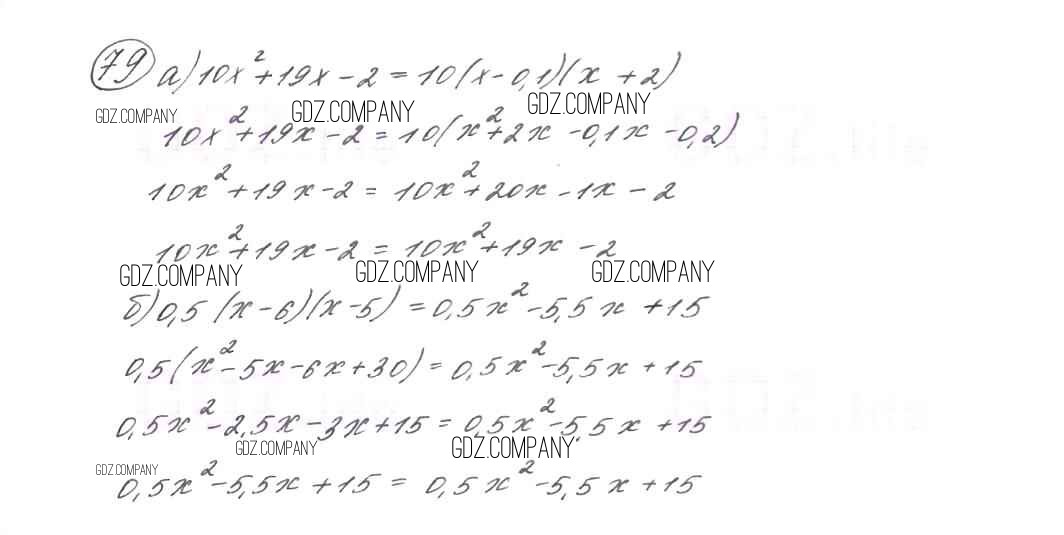 79 а) 10x² + 19x - 2 = 10(x - 0,1)(x + 2)
GDZ.COMPANY GDZ.COMPANY GDZ.COMPANY
10x² + 19x - 2 = 10(x² + 2x - 0,1x - 0,2)
10x² + 19x - 2 = 10x² + 20x - 1x - 2
10x² + 19x - 2 = 10x² + 19x - 2
GDZ.COMPANY GDZ.COMPANY GDZ.COMPANY
б) 0,5 (x - 6)(x - 5) = 0,5x² - 5,5x + 15
0,5(x² - 5x - 6x + 30) = 0,5x² - 5,5x + 15
0,5x² - 2,5x - 3x + 15 = 0,5x² - 5,5x + 15
GDZ.COMPANY GDZ.COMPANY
GDZ.COMPANY
0,5x² - 5,5x + 15 = 0,5x² - 5,5x + 15